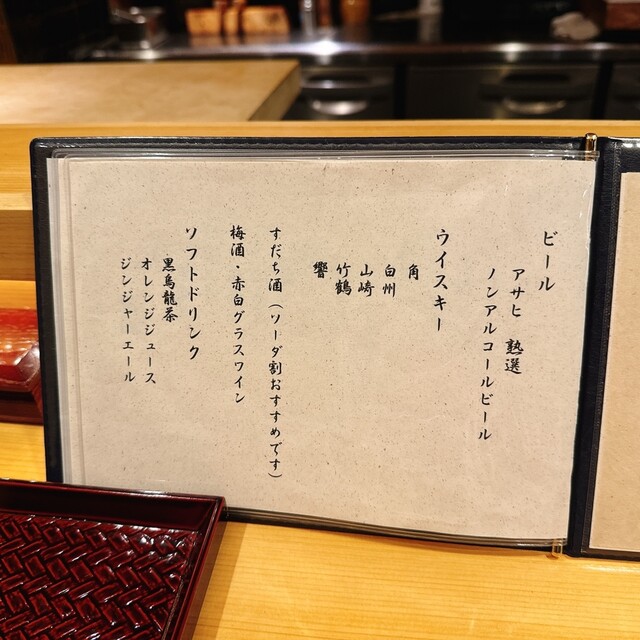 ビール
アサヒ 熟選
ノンアルコールビール
ウイスキー
角
白州
山崎
竹鶴
響
すだち酒（ソーダ割おすすめです）
梅酒・赤白グラスワイン
ソフトドリンク
黒烏龍茶
オレンジジュース
ジンジャーエール